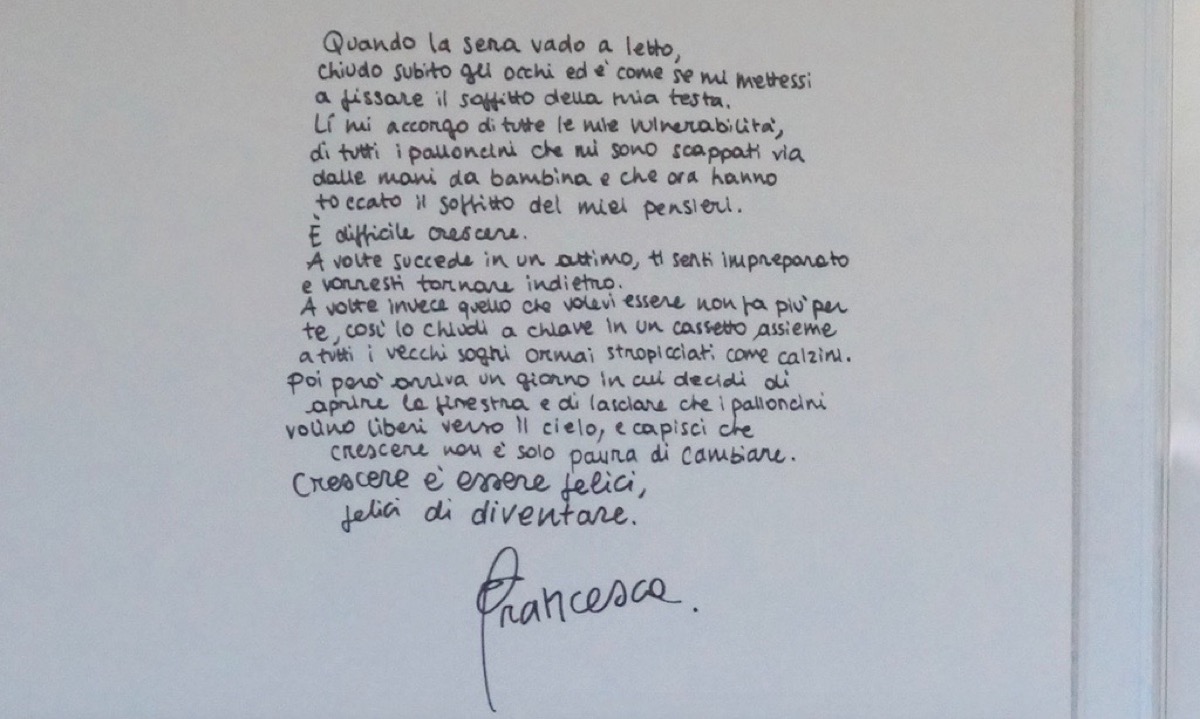 Quando la sera vado a letto,
chiudo subito gli occhi ed è come se mi mettessi
a fissare il soffitto della mia testa.
Lí mi accorgo di tutte le mie vulnerabilità,
di tutti i palloncini che mi sono scappati via
dalle mani da bambina e che ora hanno
toccato il soffitto dei miei pensieri.
È difficile crescere.
A volte succede in un attimo, ti senti impreparato
e vorresti tornare indietro.
A volte invece quello che volevi essere non fa più per
te, così lo chiudi a chiave in un cassetto assieme
a tutti i vecchi sogni ormai stropicciati come calzini.
Poi però arriva un giorno in cui decidi di
aprire la finestra e di lasciare che i palloncini
volino liberi verso il cielo, e capisci che
crescere non è solo paura di cambiare.
Crescere è essere felici,
felici di diventare.
Francesca.